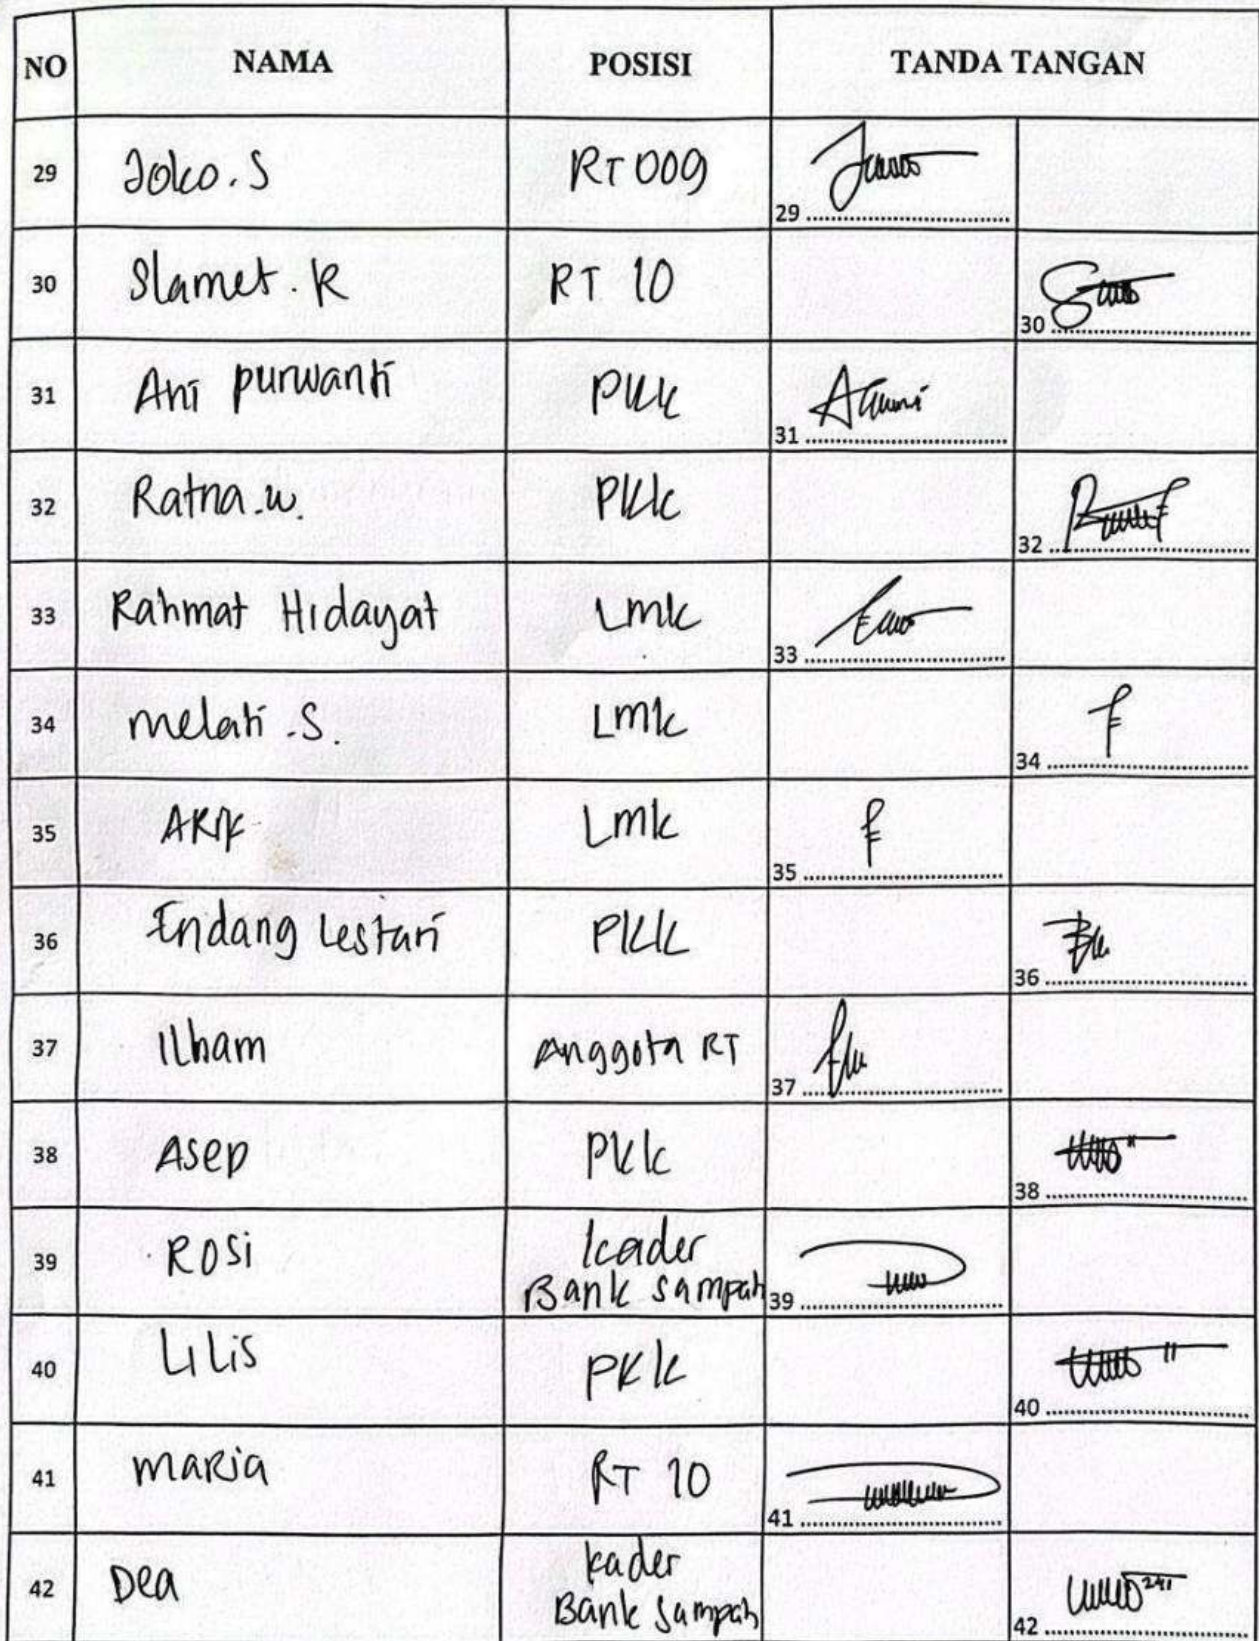 NO NAMA POSISI TANDA TANGAN
29 Joko.S RT 009 29
30 Slamet. R RT 10 30
31 Ani purwanti PKK 31
32 Ratna.w. PKK 32
33 Rahmat Hidayat Lmk 33
34 melati .S. Lmk 34
35 Lmk 35
36 Endang Lestari PKK 36
37 ILham Anggota RT 37
38 Asep PKK 38
39 Rosi kader
Bank sampah 39
40 LiLis PKK 40
41 maRia RT 10 41
42 Dea kader
Bank Sampah 42